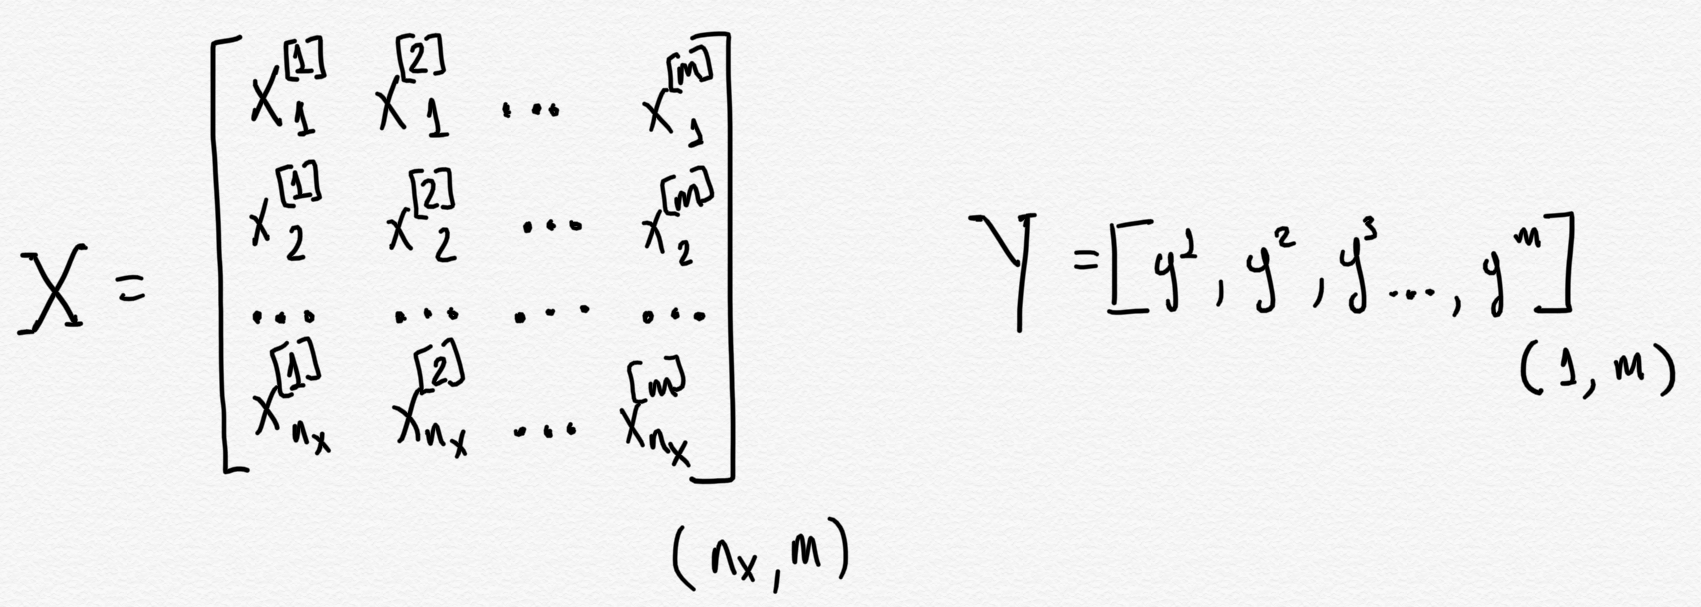 X = [ x₁^[1] x₁^[2] ... x₁^[m]
x₂^[1] x₂^[2] ... x₂^[m]
... ... ... ...
x_{n_x}^[1] x_{n_x}^[2] ... x_{n_x}^[m] ]
(n_x, m)
Y = [y¹, y², y³..., y^m]
(1, m)